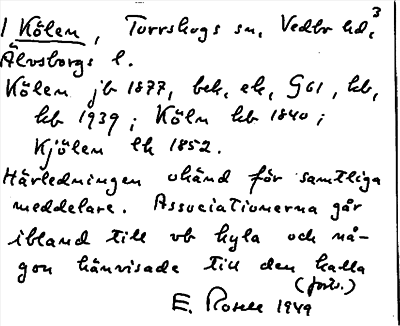 1 Kölen, Torrskogs sn, Vedbo hd, 3
Älvsborgs l.
Kölen jb 1877, bek, ek, G61, kb,
kb 1939; Köln kb 1840;
Kjölen lk 1852.
Härledningen okänd för samtliga
meddelare. Associationerna går
ibland till vb kyla och nå-
gon hänvisade till den kalla
(forts.)
E. Rosell 1949